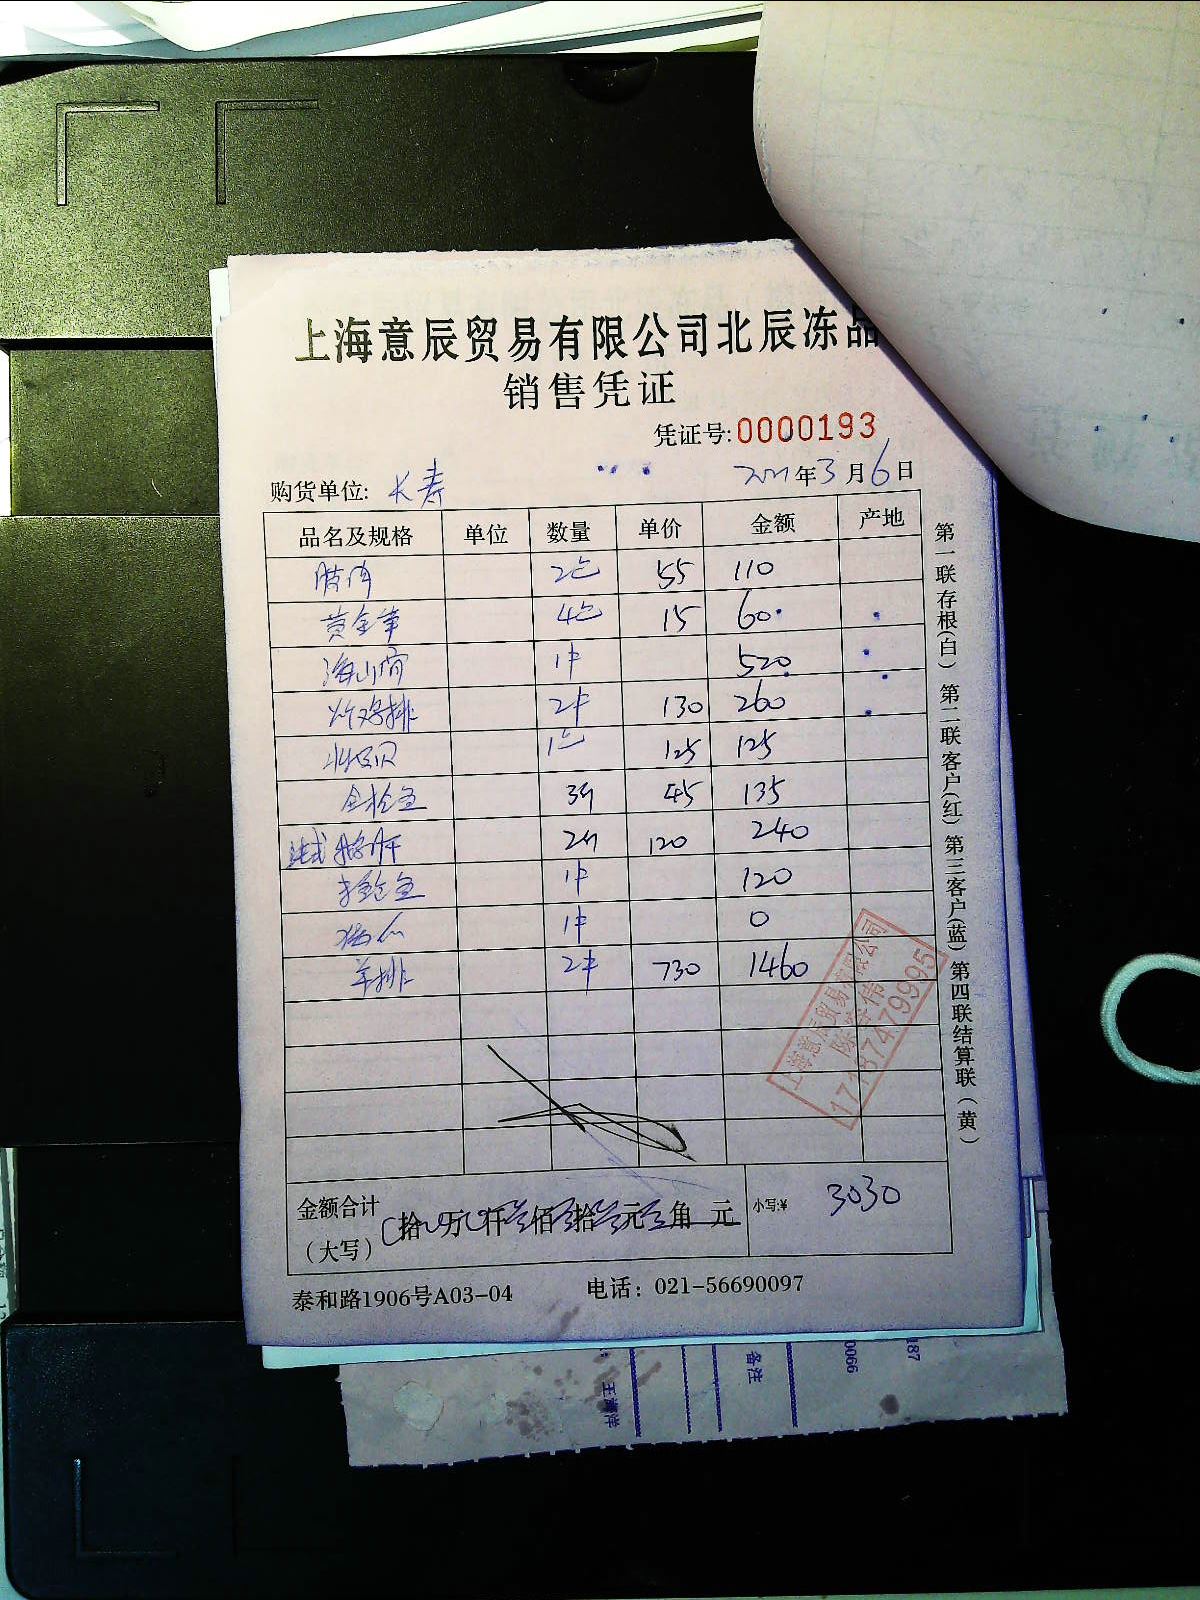 上海意辰贸易有限公司北辰冻品
销售凭证
凭证号:0000193
购货单位: 长寿 2021年3月6日
品名及规格 单位 数量 单价 金额 产地
2包 55 110
黄金笋 4包 15 60
1件 520
炸鸡排 2件 130 260
1包 125 125
金枪鱼 3 45 135
法式鹅肝 2 120 240
1件 120
1件 0
羊排 2件 730 1460
金额合计
(大写) 拾 万 仟 佰 拾 元 角 元 小写:¥ 3030
泰和路1906号A03-04 电话: 021-56690097
第一联存根(白) 第二联客户(红) 第三客户(蓝) 第四联结算联(黄)
上海意辰贸易有限公司
17187479995
备注
0066
187